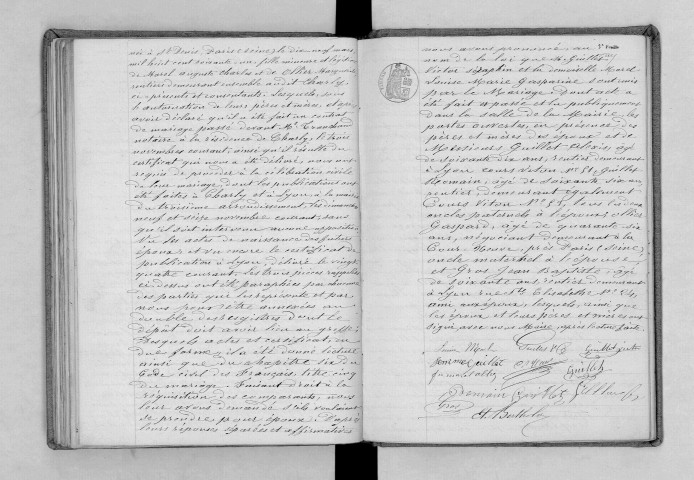 née à St Denis Paris (seine) le dix neuf mars
mil huit cent soixante un, fille mineure et légitime
de Morel auguste Charles et de Ollier Marguerite
rentiers demeurant ensemble audit Charly
ci présents et consentants. Lesquels, sous
l'autorisation de leurs pères et mères, et après
avoir déclaré qu'il a été fait un contrat
de mariage passé devant Me
notaire à la résidence de Charly, le trois
novembre courant, ainsi qu'il résulte du
certificat qui nous a été délivré, nous ont
requis de procéder à la célébration civile
de leur mariage, dont les publications ont
été faites à Charly et à Lyon à la mairie
du troisième arrondissement les dimanches
neuf et seize novembre courant, sans
qu'il soit intervenu aucune opposition
Vu les actes de naissance des futurs
époux et en outre le certificat de
publication à Lyon, délivré le vingt
quatre courant. Les trois pièces rappelées
ci dessus ont été paraphées par chacune
des parties que les présente et par
nous pour être annexées au
double des registres dont le
dépôt doit avoir lieu au greffe
Desquels actes et certificat, en
due forme, il a été donné lecture
ainsi que du chapitre six du
Code civil des Français, titre cinq
du mariage. Faisant droit à la
réquisition des comparants, nous
leur avons demandé s'ils voulaient
se prendre pour époux. D'après
leurs réponses séparées et affirmatives
5e feuille
nous avons prononcé au
nom de la loi que Mr Guillot
Victor Séraphin et la demoiselle Morel
Louise Marie Gasparine sont unis
par le Mariage. Dont acte a
été fait et passé et lu publiquement
dans la salle de la Mairie, les
portes ouvertes, en présence des
pères et mères des époux et de
Messieurs Guillot Alexis, âgé
de soixante dix ans, rentier demeurant
à Lyon cours Vitton No 51, Guillot
Romain, âgé de soixante six ans
rentier, demeurant également
Cours Vitton No 51, tous les deux
oncles paternels à l'époux, Ollier
Gaspard, âgé de quarante six
ans, négociant demeurant à la
Cour Neuve, près Paris (Seine)
oncle maternel à l'épouse,
et Gros Jean Baptiste, âgé
de soixante ans, rentier demeurant
à Lyon rue Ste Elisabeth No 54,
ami aux époux, lesquels, ainsi que
les époux et leurs pères et mères ont
signé avec nous Maire, après lecture faite.
Guillot
Guillot
Guillot
Romain Guillot
Gros